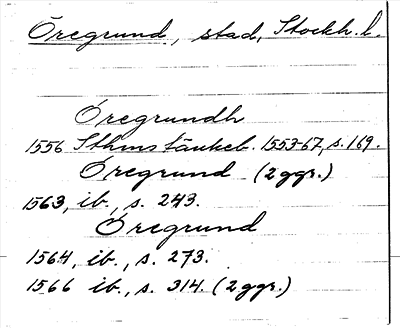 Öregrund, stad, Stockh. l.
Öregrundh
1556 Sthms tänkeb. 1553-67, s. 169.
Öregrund (2 ggr.)
1563, ib., s. 243.
Öregrund
1564, ib., s. 273.
1566 ib., s. 314. (2 ggr.)